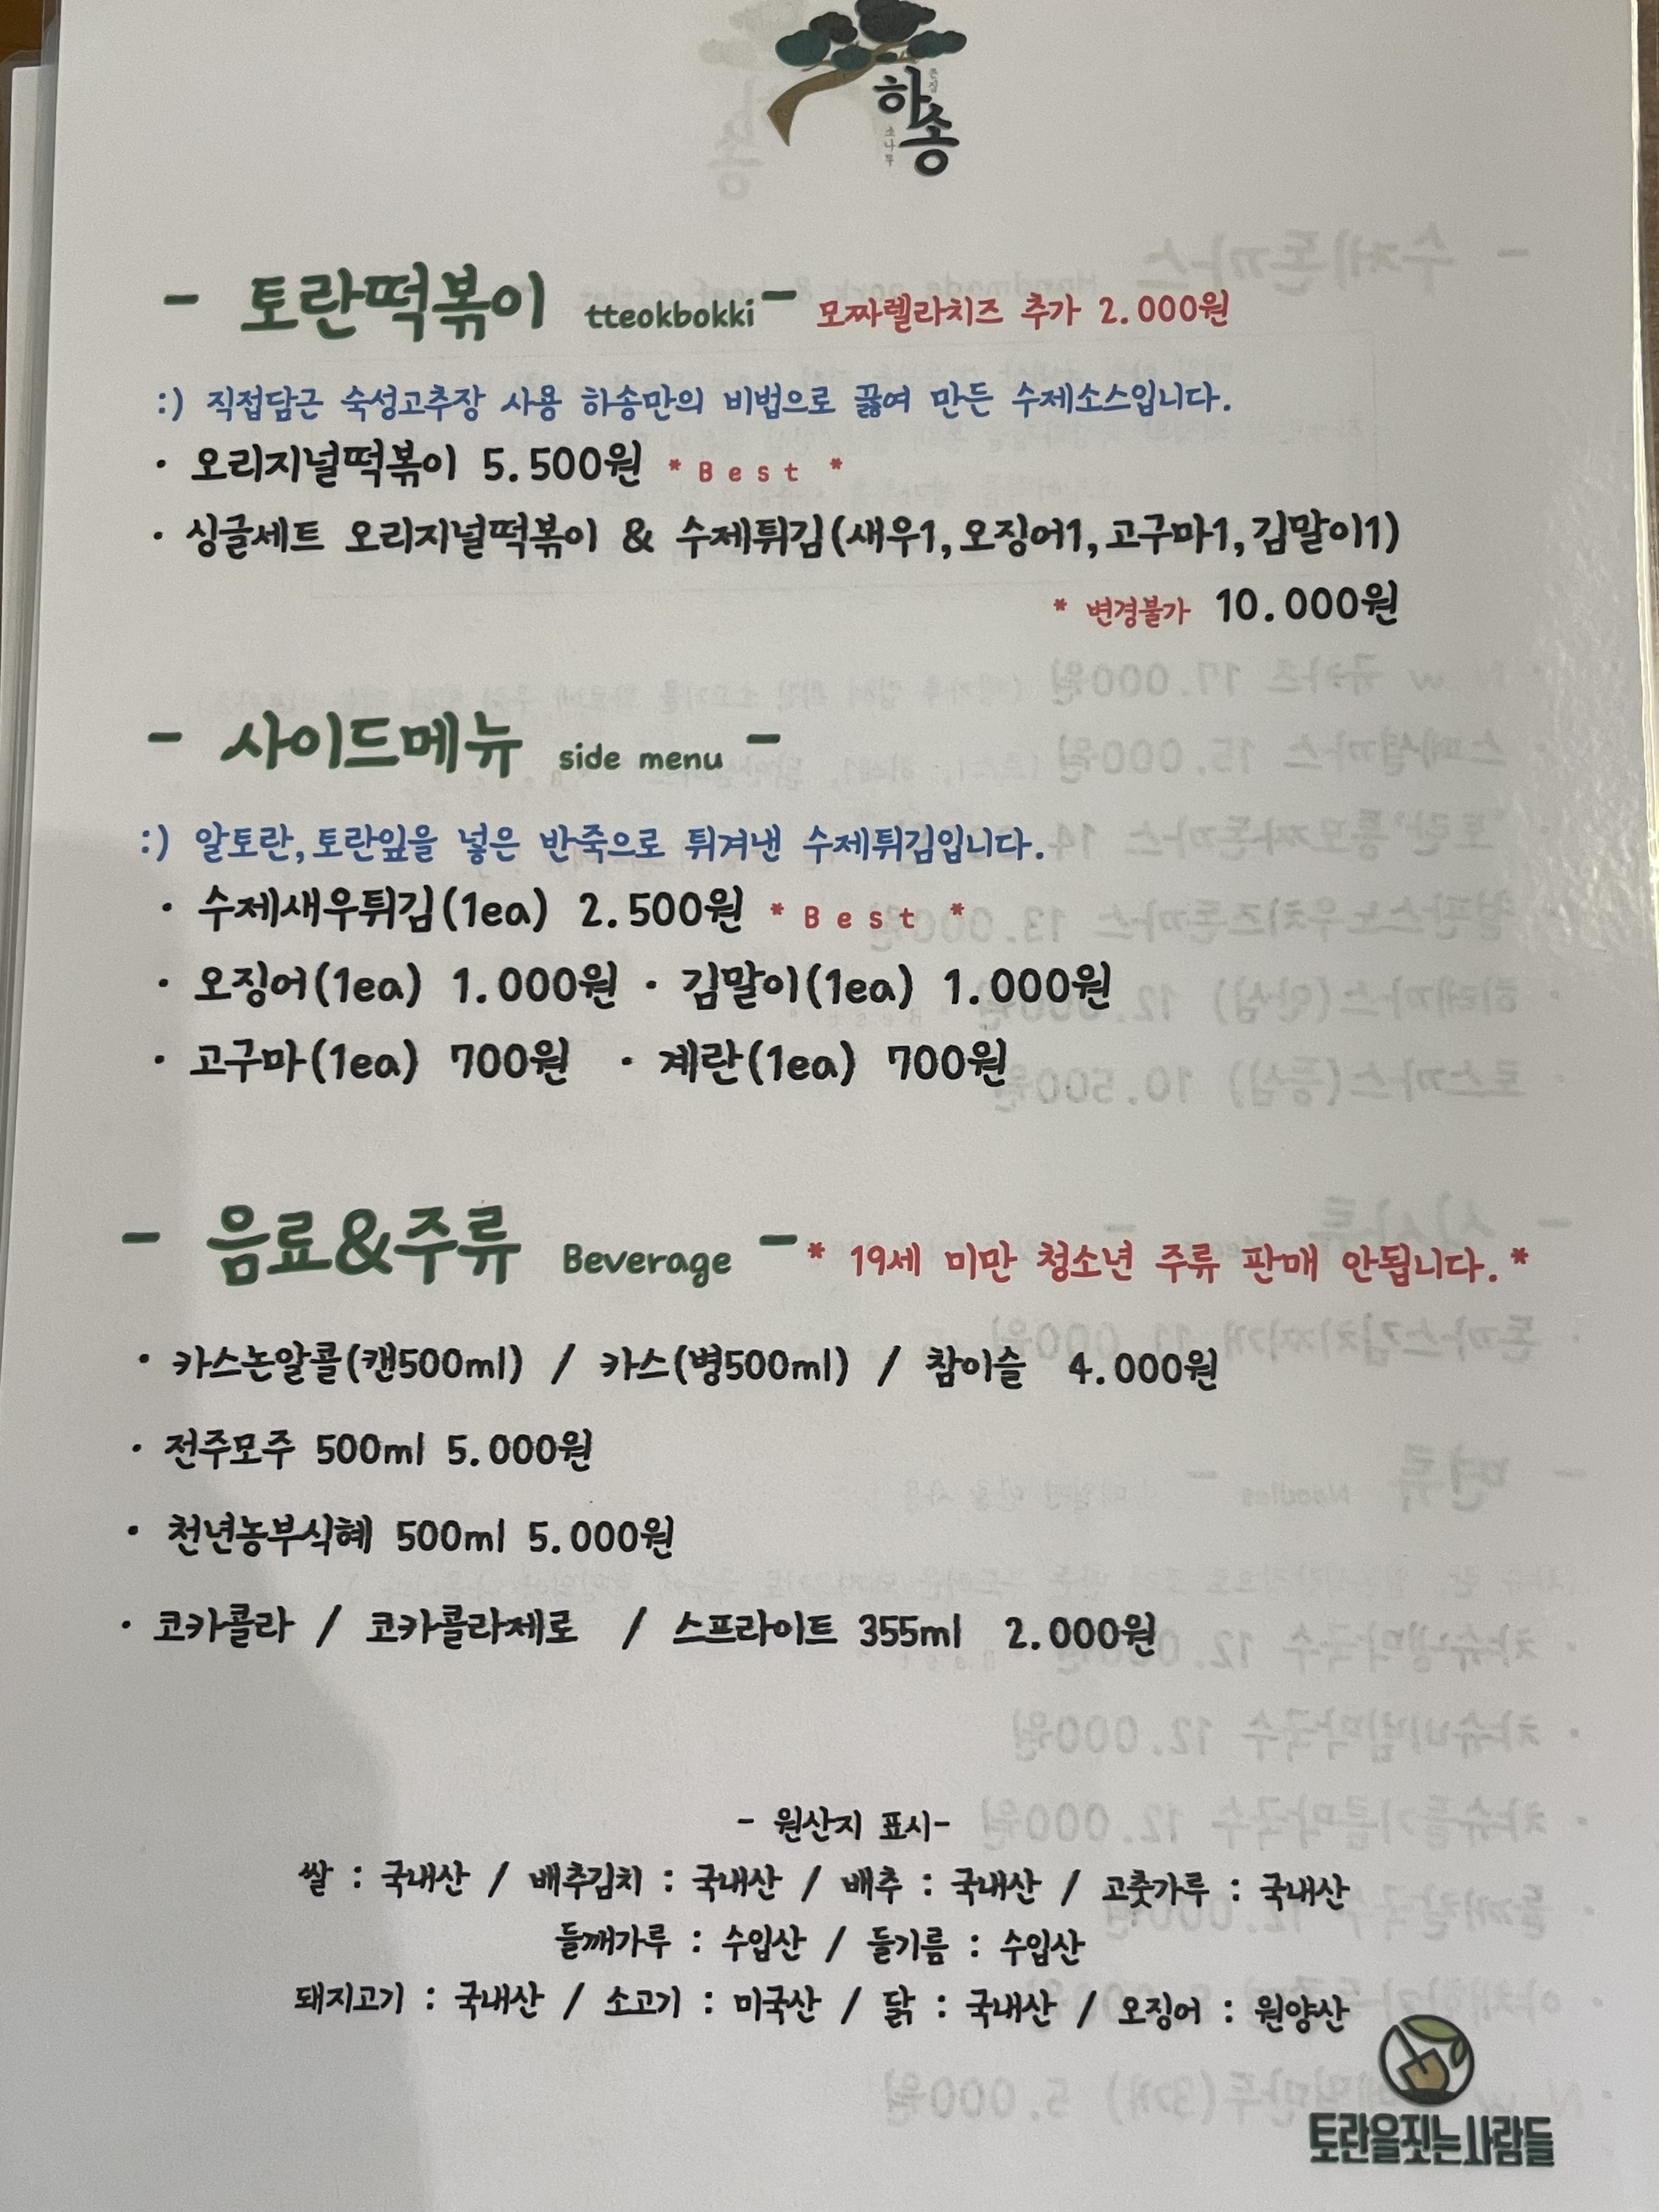 하송
소나무
- 토란떡볶이 tteokbokki - 모짜렐라치즈 추가 2.000원
:) 직접담근 숙성고추장 사용 하송만의 비법으로 끓여 만든 수제소스입니다.
· 오리지널떡볶이 5.500원 * Best *
· 싱글세트 오리지널떡볶이 & 수제튀김(새우1,오징어1,고구마1,김말이1)
* 변경불가 10.000원
- 사이드메뉴 side menu -
:) 알토란,토란잎을 넣은 반죽으로 튀겨낸 수제튀김입니다.
· 수제새우튀김(1ea) 2.500원 * Best *
· 오징어(1ea) 1.000원 · 김말이(1ea) 1.000원
· 고구마(1ea) 700원 · 계란(1ea) 700원
- 음료&주류 Beverage - * 19세 미만 청소년 주류 판매 안됩니다. *
· 카스논알콜(캔500ml) / 카스(병500ml) / 참이슬 4.000원
· 전주모주 500ml 5.000원
· 천년농부식혜 500ml 5.000원
· 코카콜라 / 코카콜라제로 / 스프라이트 355ml 2.000원
- 원산지 표시-
쌀 : 국내산 / 배추김치 : 국내산 / 배추 : 국내산 / 고춧가루 : 국내산
들깨가루 : 수입산 / 들기름 : 수입산
돼지고기 : 국내산 / 소고기 : 미국산 / 닭 : 국내산 / 오징어 : 원양산
토란을짓는사람들